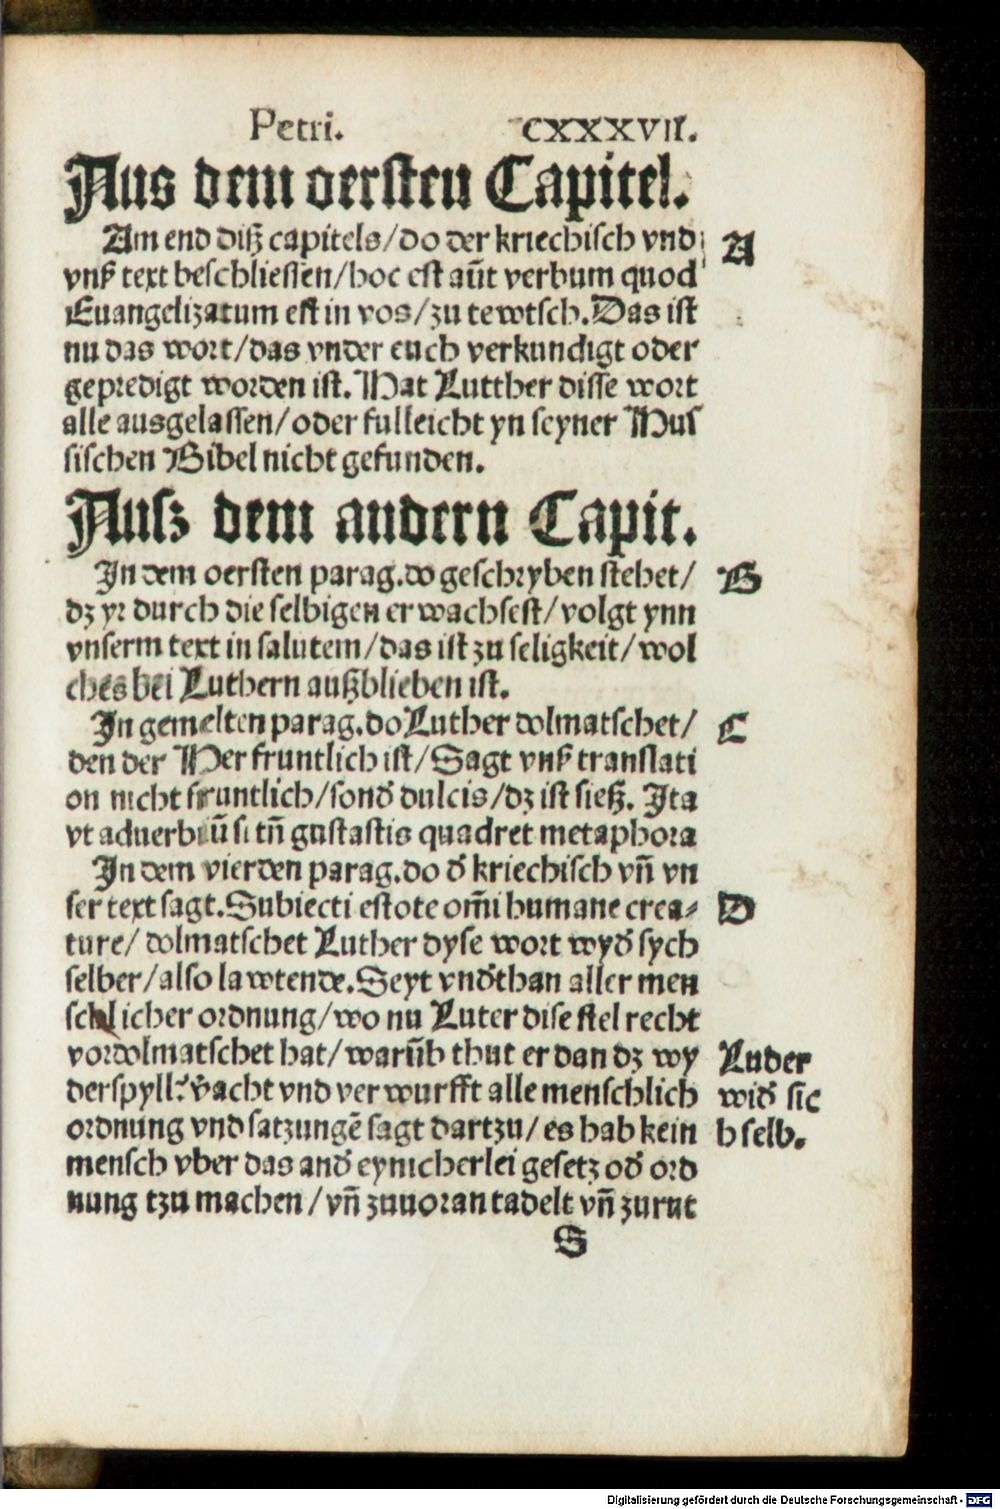 Petri. CXXXVII.
Aus dem oersten Capitel.
Am end diß capitels/do der kriechisch vnd A
vnser text beschliessen/hoc est aūt verbum quod
Euangelizatum est in vos/zu tewtsch. Das ist
nu das wort/das vnder euch verkundigt oder
gepredigt worden ist. Hat Lutther disse wort
alle ausgelassen/oder fulleicht yn seyner Hus
sischen Bibel nicht gefunden.
Ausz dem andern Capit.
In dem oersten parag. do geschryben stehet/ B
dz yr durch die selbigen erwachsest/volgt ynn
vnserm text in salutem/das ist zu seligkeit/wol
ches bei Luthern außblieben ist.
In gemelten parag. do Luther dolmatschet/ C
den der Her fruntlich ist/Sagt vnser translati
on nicht fruntlich/sonđ dulcis/dz ist sieß. Ita
vt aduerbiū si tn̄ gustastis quadret metaphora
In dem vierden parag. do đ kriechisch vn̄ vn
ser text sagt. Subiecti estote om̄i humane crea- D
ture/ dolmatschet Luther dyse wort wyđ sych
selber/also lawtende. Seyt vnđthan aller men
schlicher ordnung/wo nu Luter dise stel recht
vordolmatschet hat/warūb thut er dan dz wy Luder
derspyll? v̄acht vnd verwurfft alle menschlich widđ sic
ordnung vnd satzungē sagt dartzu/es hab kein h selb.
mensch vber das anđ eynicherlei gesetz ođ ord
nung tzu machen/vn̄ zuuoran tadelt vn̄ zurnt
S
Digitalisierung gefördert durch die Deutsche Forschungsgemeinschaft - DFG